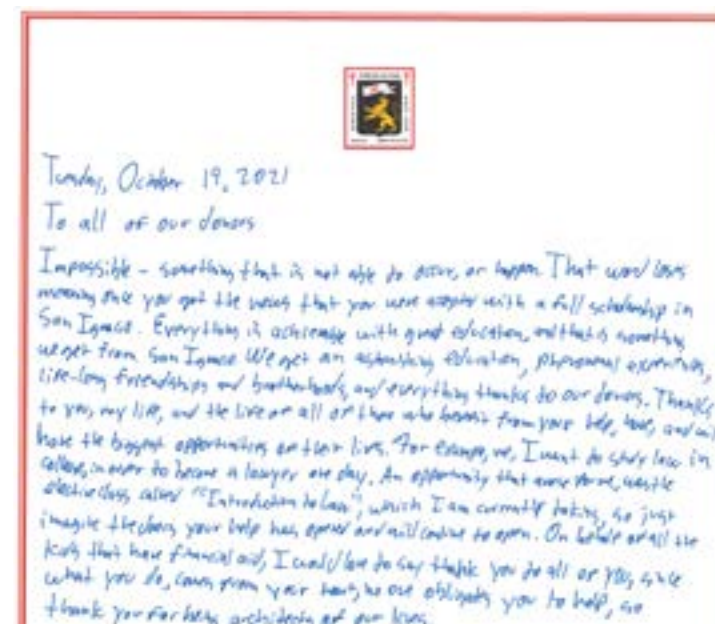 Tuesday, October 19, 2021
To all of our donors
Impossible - something that is not able to occur, or happen. That word loses
meaning once you get the news that you were accepted with a full scholarship in
San Ignacio. Everything is achievable with good education, and that is something
we get from San Ignacio. We get an astonishing education, phenomenal experiences,
life-long friendships and brotherhoods, and everything thanks to our donors. Thanks
to you, my life, and the live of all of those who benefit from your help, have, and will
have the biggest opportunities of their lives. For example, me, I want to study law in
college, in order to become a lawyer one day. An opportunity that was the
elective class called "Introduction to Law", which I am currently taking, so just
imagine the doors your help has opened and will continue to open. On behalf of all the
kids that have financial aid, I would love to say thank you to all of you, since
what you do, comes from your heart, no one obligates you to help, so
thank you for being architects of our lives.